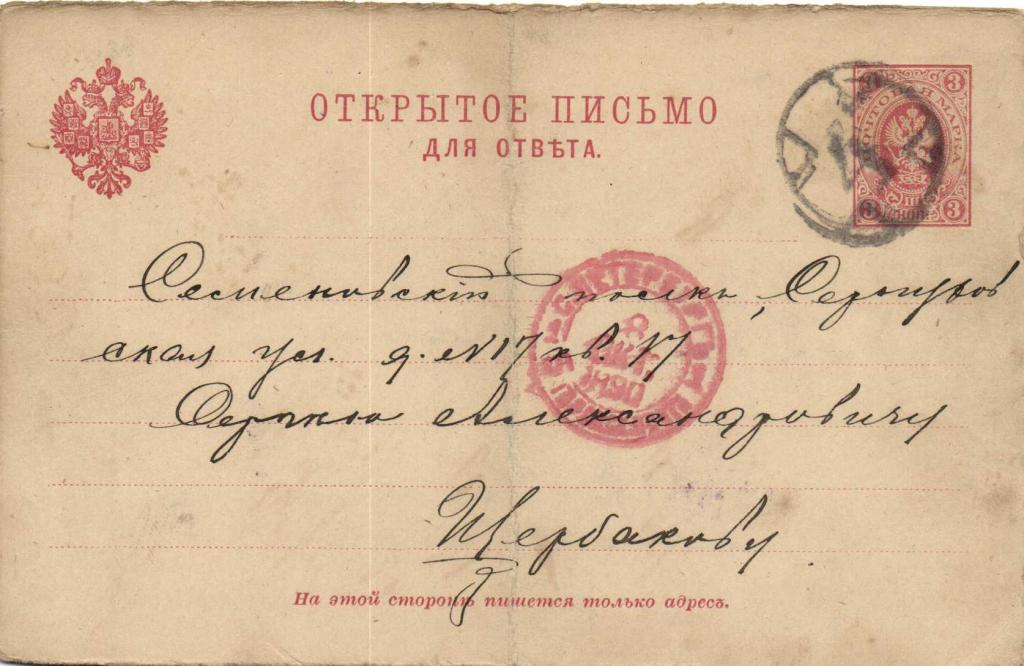 ОТКРЫТОЕ ПИСЬМО
ДЛЯ ОТВѢТА.
ПОЧТОВАЯ МАРКА
3 3
3 3
С.ПЕТЕРБУРГЪ
8
1890
Семеновскій полкъ, Серпухов
ская ул. д. №17 кв. 17
Сергѣю Александровичу
Щербакову
На этой сторонѣ пишется только адресъ.